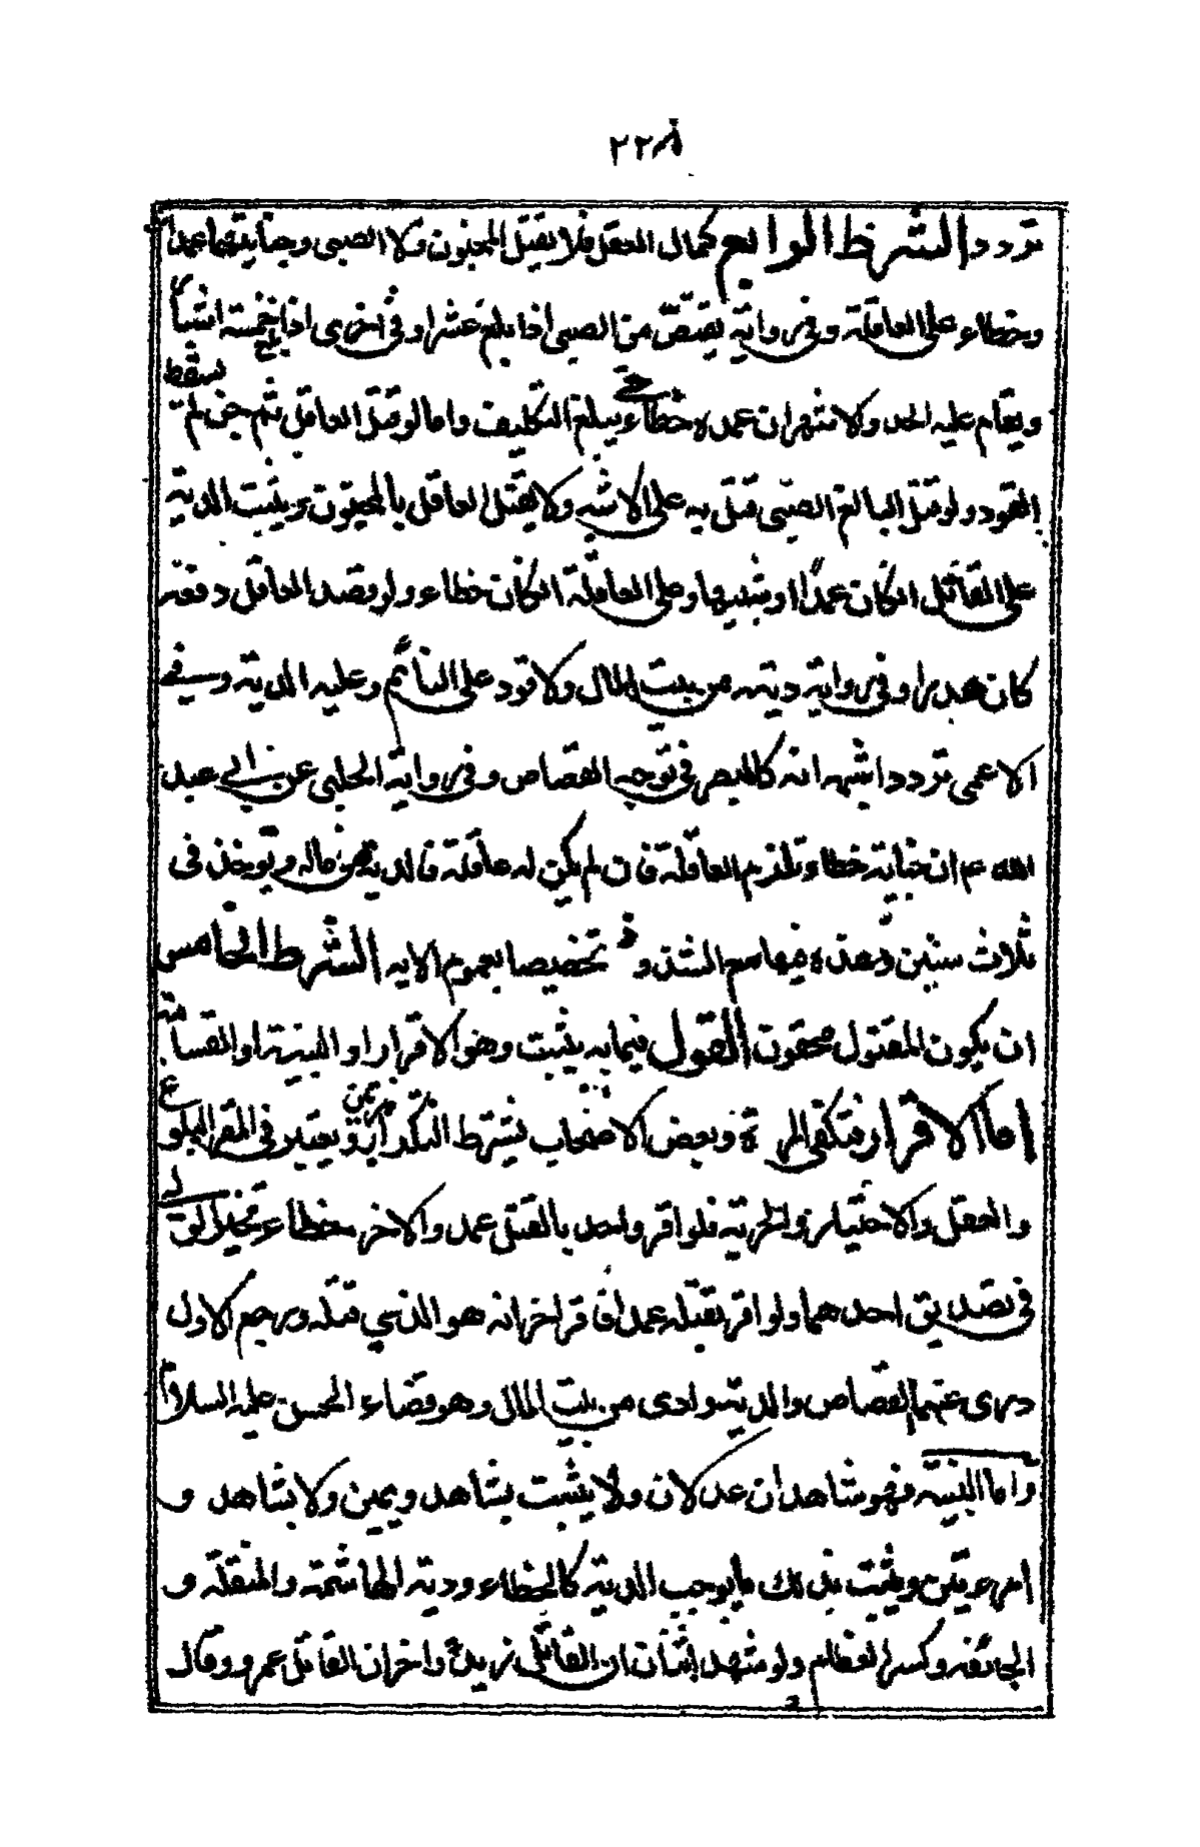 ٢٢٨
تردد الشرط الرابع كمال العقل فلا يقتل المجنون ولا الصبى وجنايتهما عمدا
وخطاء على العاقلة وفى رواية يقتص من الصبى اذا بلغ عشرا وفى اخرى اذا بلغ خمسة اشبار
ويقام عليه الحد والاشهر ان عمده خطاء حتى يبلغ التكليف واما لو قتل العاقل ثم جن لم يسقط
القود ولو قتل البالغ الصبى قتل به على الاشبه ولا يقتل العاقل بالمجنون ويثبت الدية
على القاتل انكان عمدًا او شبيها وعلى العاقلة انكان خطاء ولو قصد العاقل دفعه
كان هدرا وفى رواية ديته من بيت المال ولا قود على النائم وعليه الدية وفى
الاعمى تردد اشبهه انه كالمبصر فى توجه القصاص وفى رواية الحلبى عن ابي عبد
الله عم ان جناية خطاء تلزم العاقلة فان لم يكن له عاقلة فالدية فى ماله ويؤخذ فى
ثلاث سنين وهذه فيها مع الشذوذ تخصيص لعموم الايه الشرط الخامس
ان يكون المقتول محقون القول فيما به يثبت وهو الاقرار او البينة او القسامة
اما الاقرار فتكفى المرة وبعض الاصحاب يشترط التكرار مرتين ويعتبر فى المقر البلوغ
والعقل والاختيار والحرية فلو اقر واحد بالقتل عمد والاخر خطاء تخير الولى
فى تصديق احدهما ولو اقر بقتله عمدا فاقر اخر انه هو الذي قتله ورجع الاول
درى عنهما القصاص والدية وادى من بيت المال وهو قضاء الحسن عليه السلام
واما البينة فهو شاهدان عدلان ولا يثبت بشاهد ويمين ولا بشاهد و
امرءتين ويثبت بذلك ما يوجب الدية كالخطاء ودية الهاشمة والمنقلة و
الجائفة وكسر العظام ولو شهد اثنان ان القاتل زيد واخران القاتل عمرو وقال